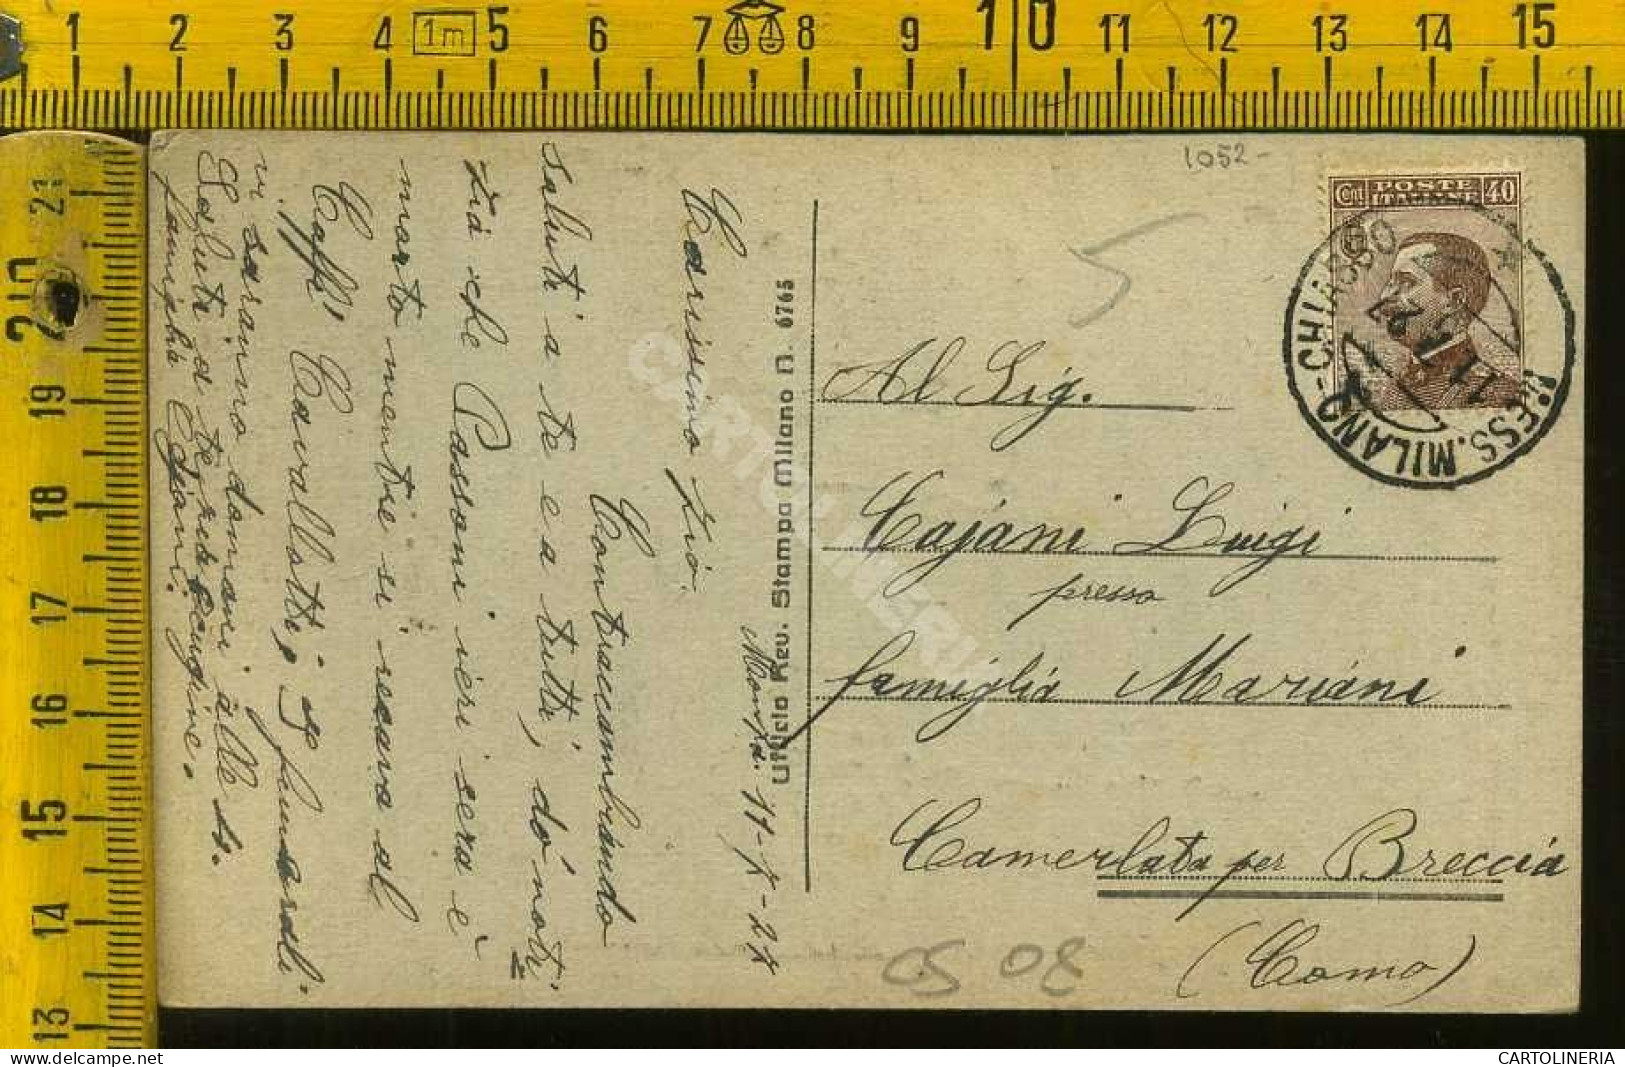 1 2 3 4 1m 5 6 7 8 9 10 11 12 13 14 15
21
20
19
18
17
16
15
14
13
1052-
5
Cmi POSTE ITALIANE 40
MESS. MILANO-CHIASSO
Monza. 11-7-27
Carissimo zio.
Contraccambiando
saluti a te e a tutti, dò noti
zia che Passoni ieri sera è
morto mentre si recava al
Caffè Cavallotti, i funerali
vi saranno domani alle
Saluti a te
famiglia Cajani.
Ufficio Rev. Stampa Milano N. 6765
Al Sig.
Cajani Luigi
presso
famiglia Mariani
Camerlata per Breccia
(Como)
CARTOLINERIA
CARTOLINERIA